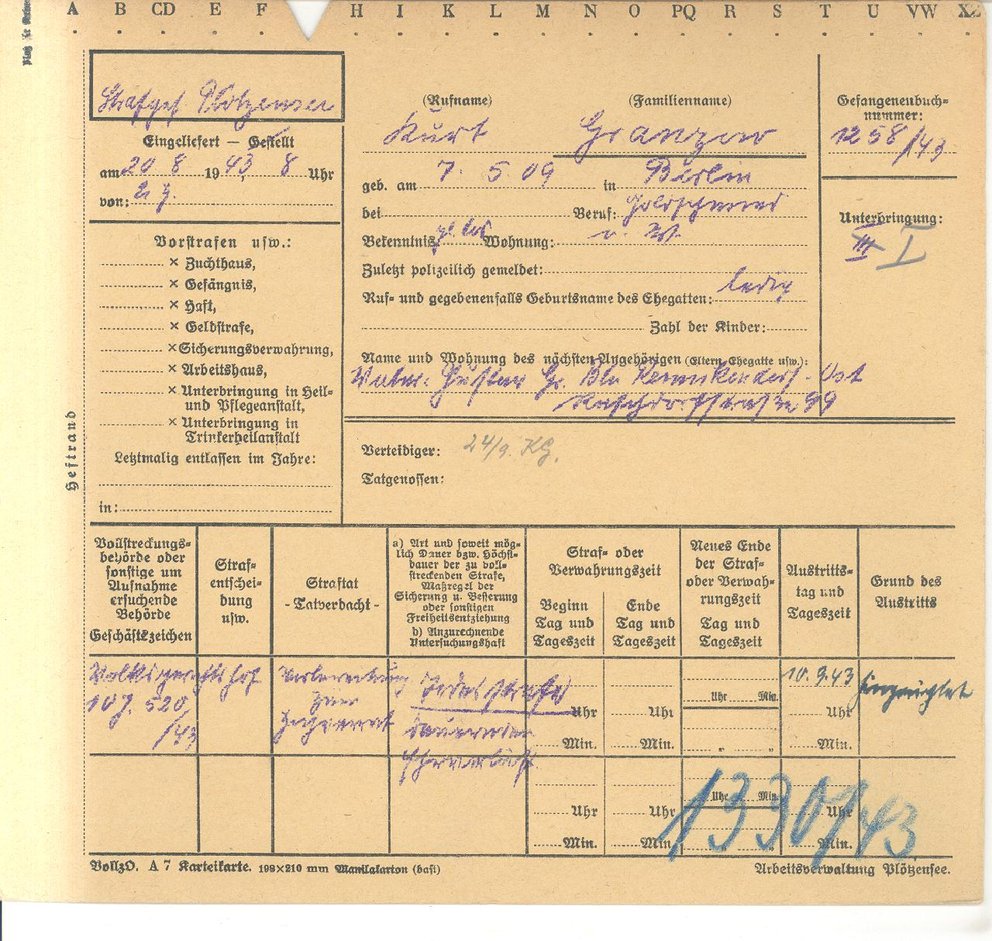 A B CD E F H I K L M N O PQ R S T U VW XZ
Strafgef. Plötzensee
Eingeliefert — Gestellt
am 20 8 1943, 8 Uhr
von:
Vorstrafen usw.:
× Zuchthaus,
× Gefängnis,
× Haft,
× Geldstrafe,
× Sicherungsverwahrung,
× Arbeitshaus,
× Unterbringung in Heil-
und Pflegeanstalt,
× Unterbringung in
Trinkerheilanstalt
Letztmalig entlassen im Jahre:
in:
Heftrand
(Rufname) (Familienname)
Kurt Granzow
geb. am 7. 5 09 in Berlin
bei Beruf: Goldschmied
Bekenntnis Wohnung:
Zuletzt polizeilich gemeldet:
Ruf- und gegebenenfalls Geburtsname des Ehegatten: ledig
Zahl der Kinder:
Name und Wohnung des nächsten Angehörigen (Eltern, Ehegatte usw.):
Vater: Gustav Gr. Bln Reinickendorf-Ost
Gefangenenbuch-
nummer:
1258/43
Unterbringung:
III I
Verteidiger: 24/9. KG.
Tatgenossen:
Vollstreckungs-
behörde oder
sonstige um
Aufnahme
ersuchende
Behörde
Geschäftszeichen
Straf-
entschei-
dung
usw.
Straftat
- Tatverdacht -
a) Art und soweit mög-
lich Dauer bzw. Höchst-
dauer der zu voll-
streckenden Strafe,
Maßregel der
Sicherung u. Besserung
oder sonstigen
Freiheitsentziehung
b) Anzurechnende
Untersuchungshaft
Straf- oder
Verwahrungszeit
Beginn
Tag und
Tageszeit
Ende
Tag und
Tageszeit
Neues Ende
der Straf-
oder Verwah-
rungszeit
Tag und
Tageszeit
Austritts-
tag und
Tageszeit
Grund des
Austritts
Volksgerichtshof
10 J. 520
/43
Vorbereitung
zum
Hochverrat
Todesstrafe
dauernden
Ehrverlust
10.9.43 hingerichtet
Uhr Uhr Uhr Min. Uhr
Min. Min. " " Min.
Uhr Uhr Uhr Min. Uhr
Min. Min. " Min.
1330/43
VollzO. A 7 Karteikarte. 198×210 mm Manilakarton (hafi)
Arbeitsverwaltung Plötzensee.